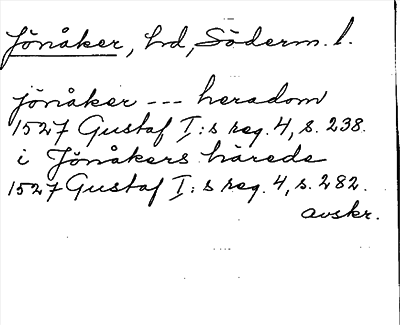 Jönåker, hd, Söderm. l.
jönåker --- heradom
1527 Gustaf I:s reg. 4, s. 238.
i Jönåkers härede
1527 Gustaf I:s reg. 4, s. 282.
avskr.